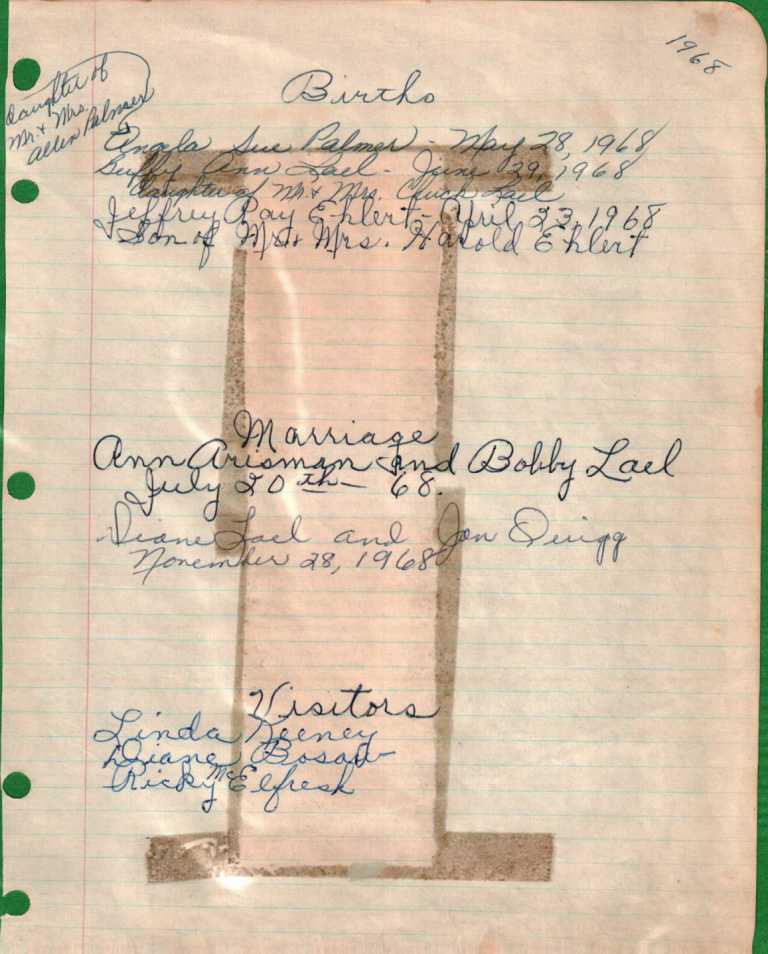 1968
Births
daughter of
Mr. & Mrs.
Allen Palmser
Angela Sue Palmer - May 28, 1968
Ann Lael - June 29, 1968
daughter of Mr. & Mrs. Chuck Lael
Jeffrey Ray Ehlert - April 23, 1968
Son of Mr. & Mrs. Harold Ehlert
Marriage
Ann Arisman and Bobby Lael
July 20th - 68.
Diane Lael and Jon Quigg
November 28, 1968
Visitors
Linda Keeney
Diane Bosaw
Ricky McElfresh